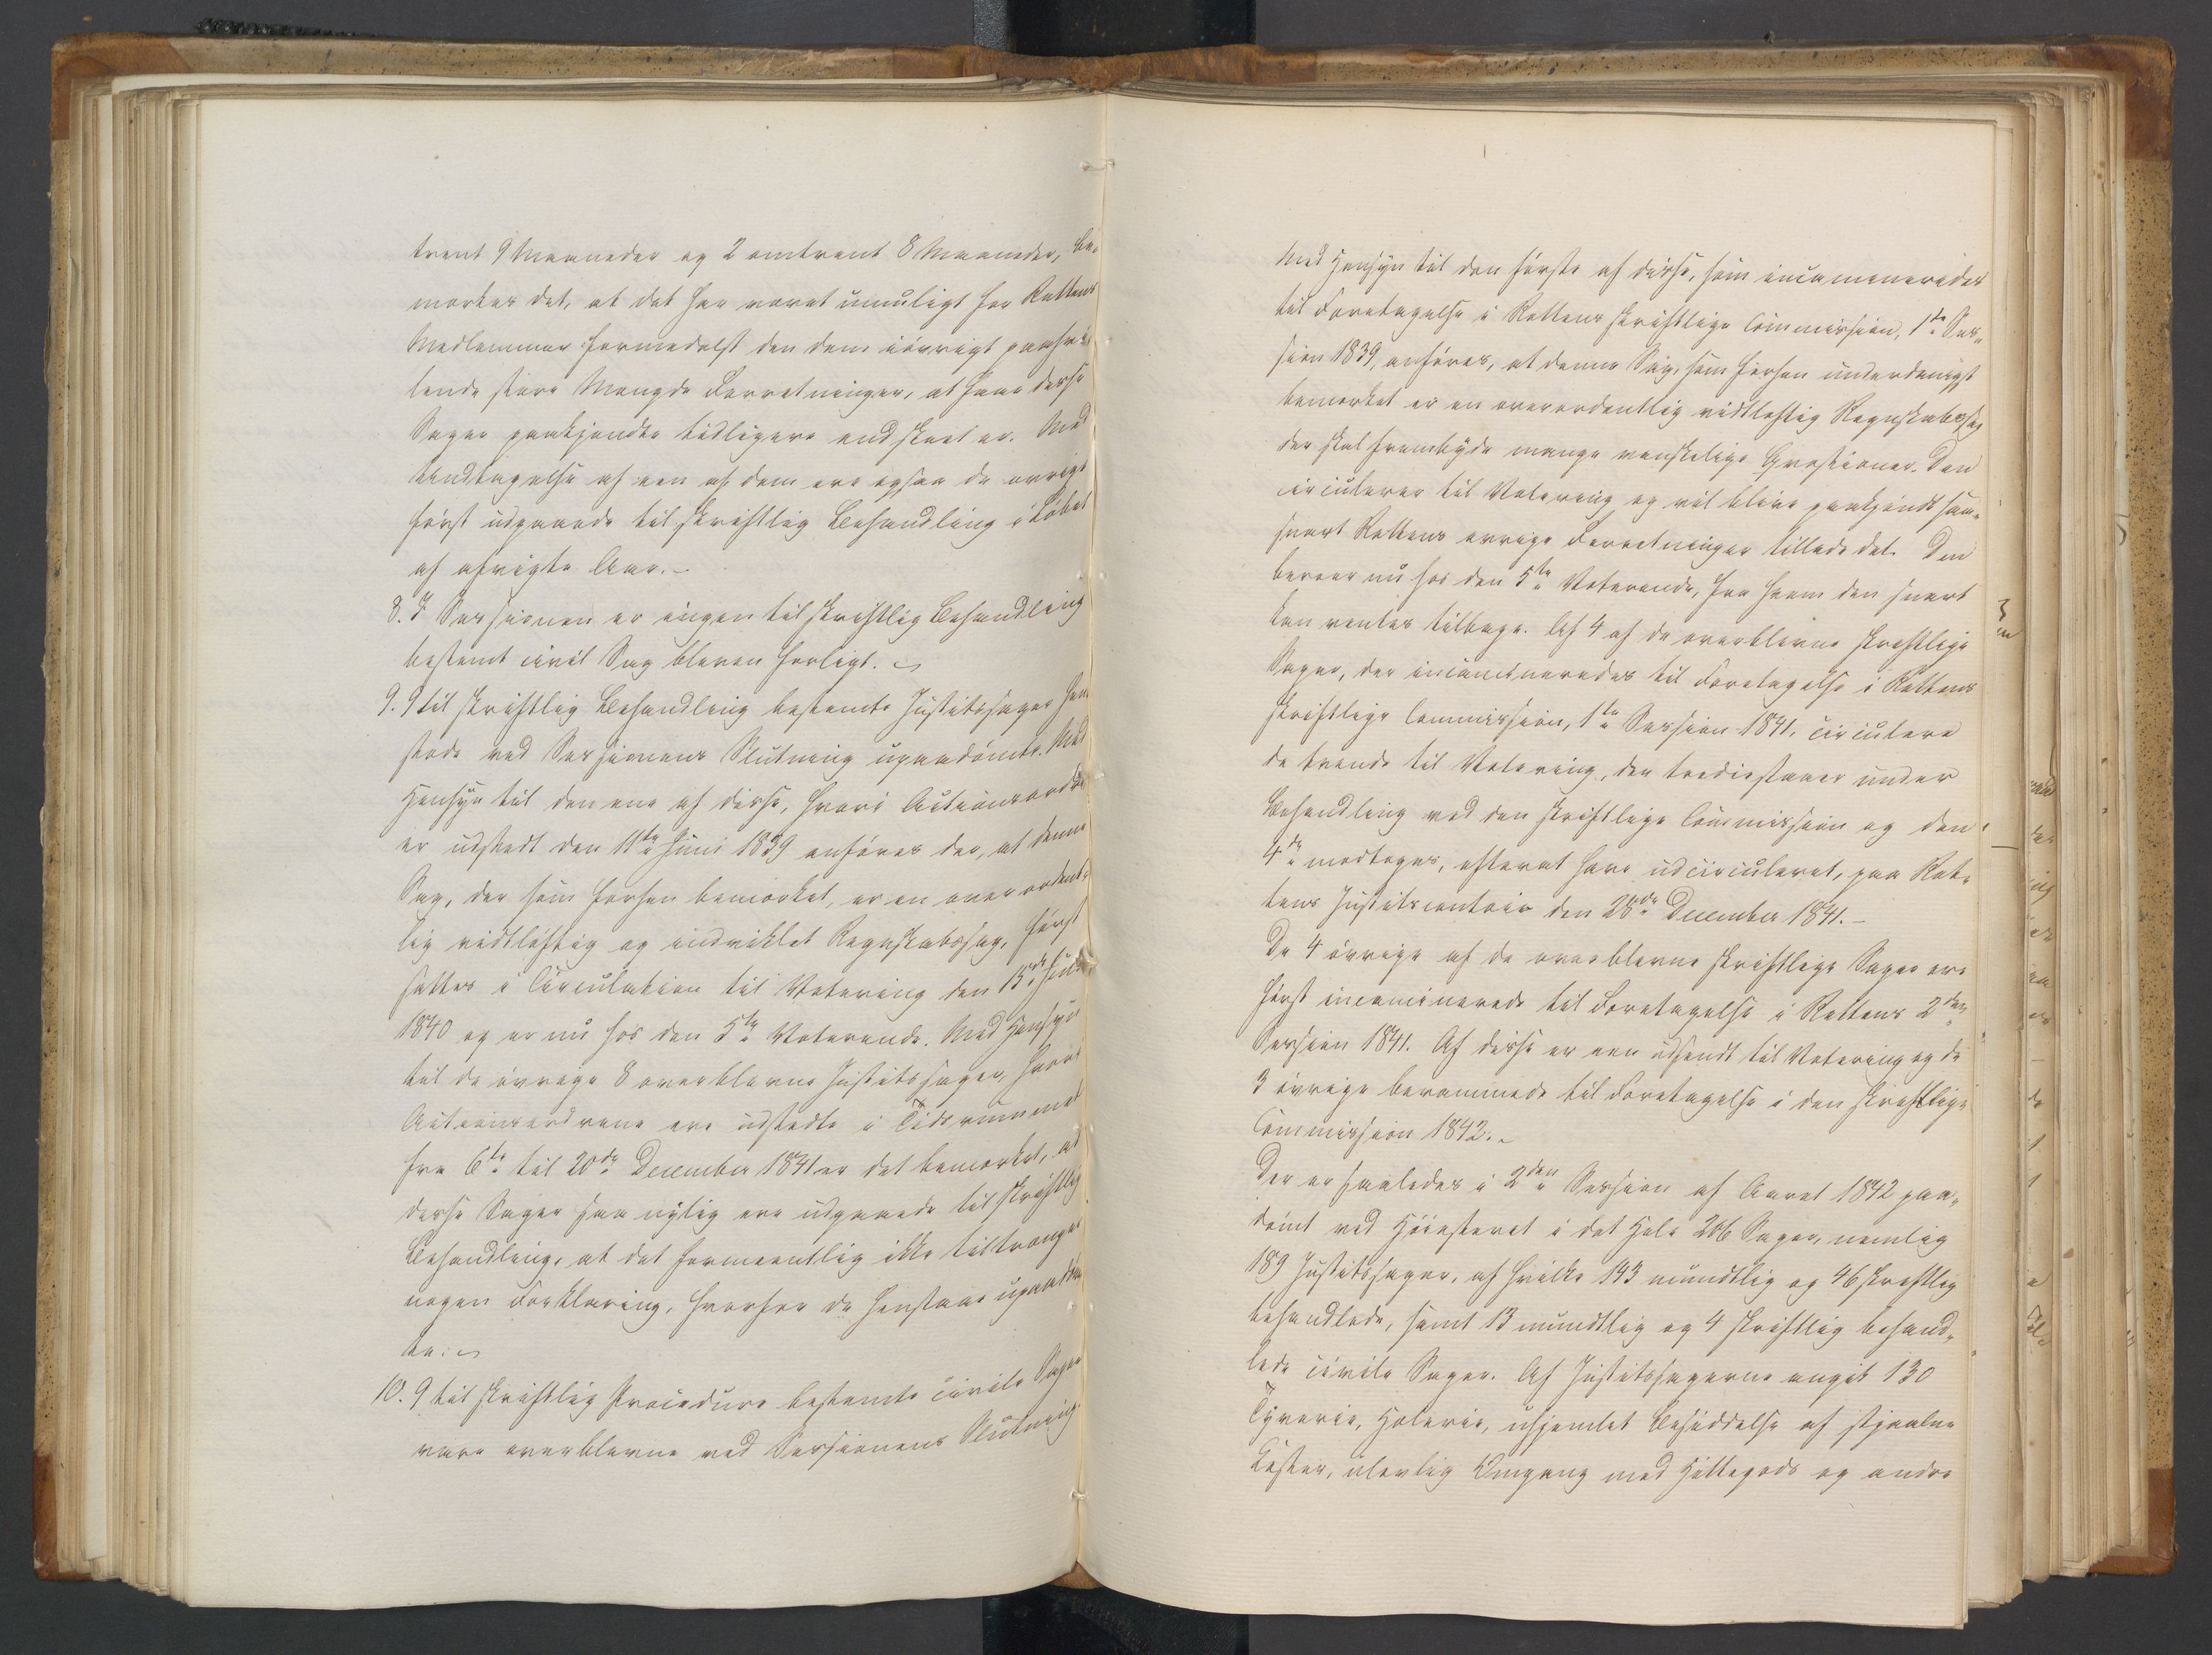 trent 9 Maaneder og 2 omtrent 8 Maaneder, be-
mærkes det, at det har været umuligt for Rettens
Medlemmer formedelst den dem iövrigt paahvi-
lende store Mængde Forretninger, at faae disse
Sager paakjendte tidligere end skeet er. Med
Undtagelse af een af dem ere ogsaa de övrige
först udgaaede til skriftlig Behandling i Löbet
af afvigte Aar.-
8. I Sessionen er ingen til skriftlig Behandling
bestemt civil Sag bleven forligt.
9. 9 til skriftlig Behandling bestemte Justitssager hen
stode ved Sessionens Slutning upaadömte. Med
Hensyn til den ene af disse, hvori Actionsordre
er udstedt den 11te Juni 1839 anföres der, at denne
Sag, der som forhen bemærket, er en overordent-
lig vidtlöftig og indviklet Regnskabssag, först
sattes i Circulation til Votering den 13de Juli
1840 og er nu hos den 5te Voterende. Med Hensyn
til de övrige 8 overblevne Justitssager, hvori
Actionsordrene ere udstedte i Tidsrummet
fra 6te til 20de December 1841 er det bemærket, at
disse Sager saa nylig ere udgaaede til skriftlig
Behandling, at det formeentlig ikke tiltrænges
nogen Forklaring, hvorfor de henstaae upaadöm
te.
10. 9 til skriftlig Procedure bestemte civile Sager
vare overblevne ved Sessionens Slutning.
Med Hensyn til den förste af disse, som incamineredes
til Foretagelse i Rettens skriftlige Commission, 1te Ses-
sion 1839, anföres, at denne Sag, som forhen underdanigst
bemærket er en overordentlig vidtlöftig Regnskabssag
der skal frembyde mange vanskelige Qvæstioner. Den
circulerer til Votering og vil blive paakjendt saa-
snart Rettens övrige Forretninger tillade det. Den
beroer nu hos den 5te Voterende, fra hvem den snart
kan ventes tilbage. Af 4 af de overblevne skriftlige
Sager, der incamineredes til Foretagelse i Rettens
skriftlige Commission, 1te Session 1841, circulere
de tvende til Votering, den tredie staaer under
Behandling ved den skriftlige Commission og den
4de modtoges, efterat have udcirculeret, paa Ret-
tens Justitscontoir den 28de December 1841.-
De 4 övrige af de overblevne skriftlige Sager ere
först incaminerede til Foretagelse i Rettens 2den
Session 1841. Af disse er een udsendt til Votering og de
3 övrige berammede til Foretagelse i den skriftlige
Commission 1842.
Der er saaledes i 2den Session af Aaret 1842 paa-
dömt ved Höiesteret i det Hele 206 Sager, nemlig
189 Justitssager, af hvilke 143 mundtlig og 46 skriftlig
behandlede, samt 13 mundtlig og 4 skriftlig behand-
lede civile Sager. Af Justitssagerne angik 130
Tyverie, Hælerie, uhjemlet Besiddelse af stjaalne
Koster, ulovlig Omgang med Hittegods og andre